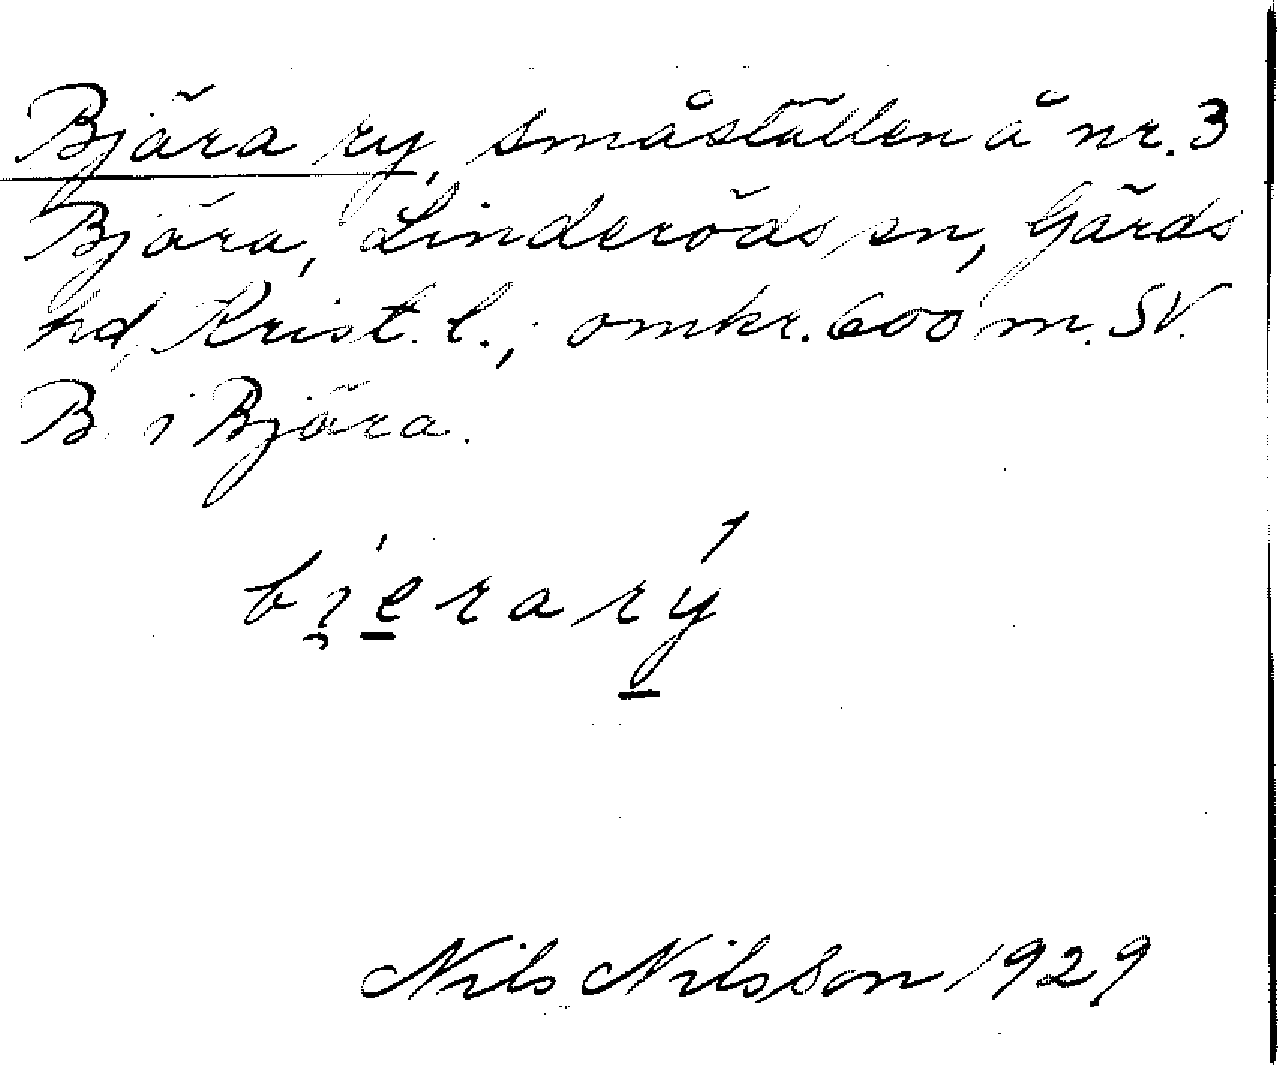 Bjära ry, småställen å nr. 3
Bjära, Linderöds sn, Gärds
hd, Krist. l.; omkr. 600 m. SV.
B. i Bjära.
bi̯erarý
Nils Nilsson 1929